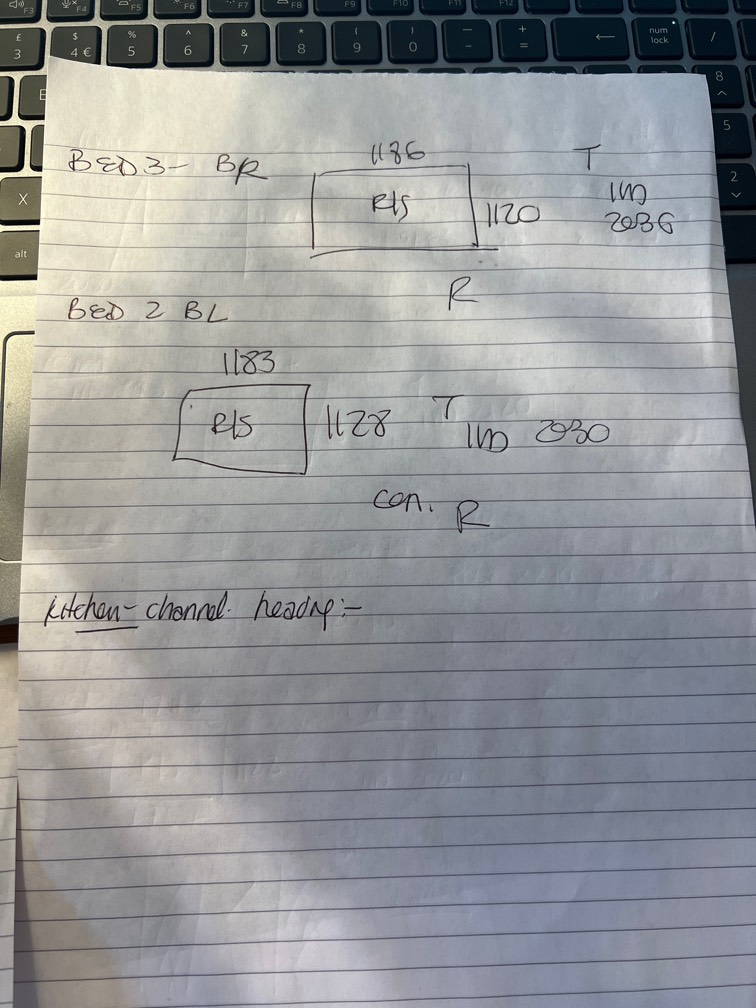 BED 3 - BR
1186
R/S
1120
T
2036
R
BED 2 BL
1183
R/S
1128
T
2030
con. R
Kitchen - channel. heading :-
F3 F4 F5 F6 F7 F8 F9 F10 F11 F12
£ 3
$ 4 €
% 5
^ 6
& 7
* 8
( 9
) 0
_ -
+ =
←
num lock
/
E
8
5
2
X
alt